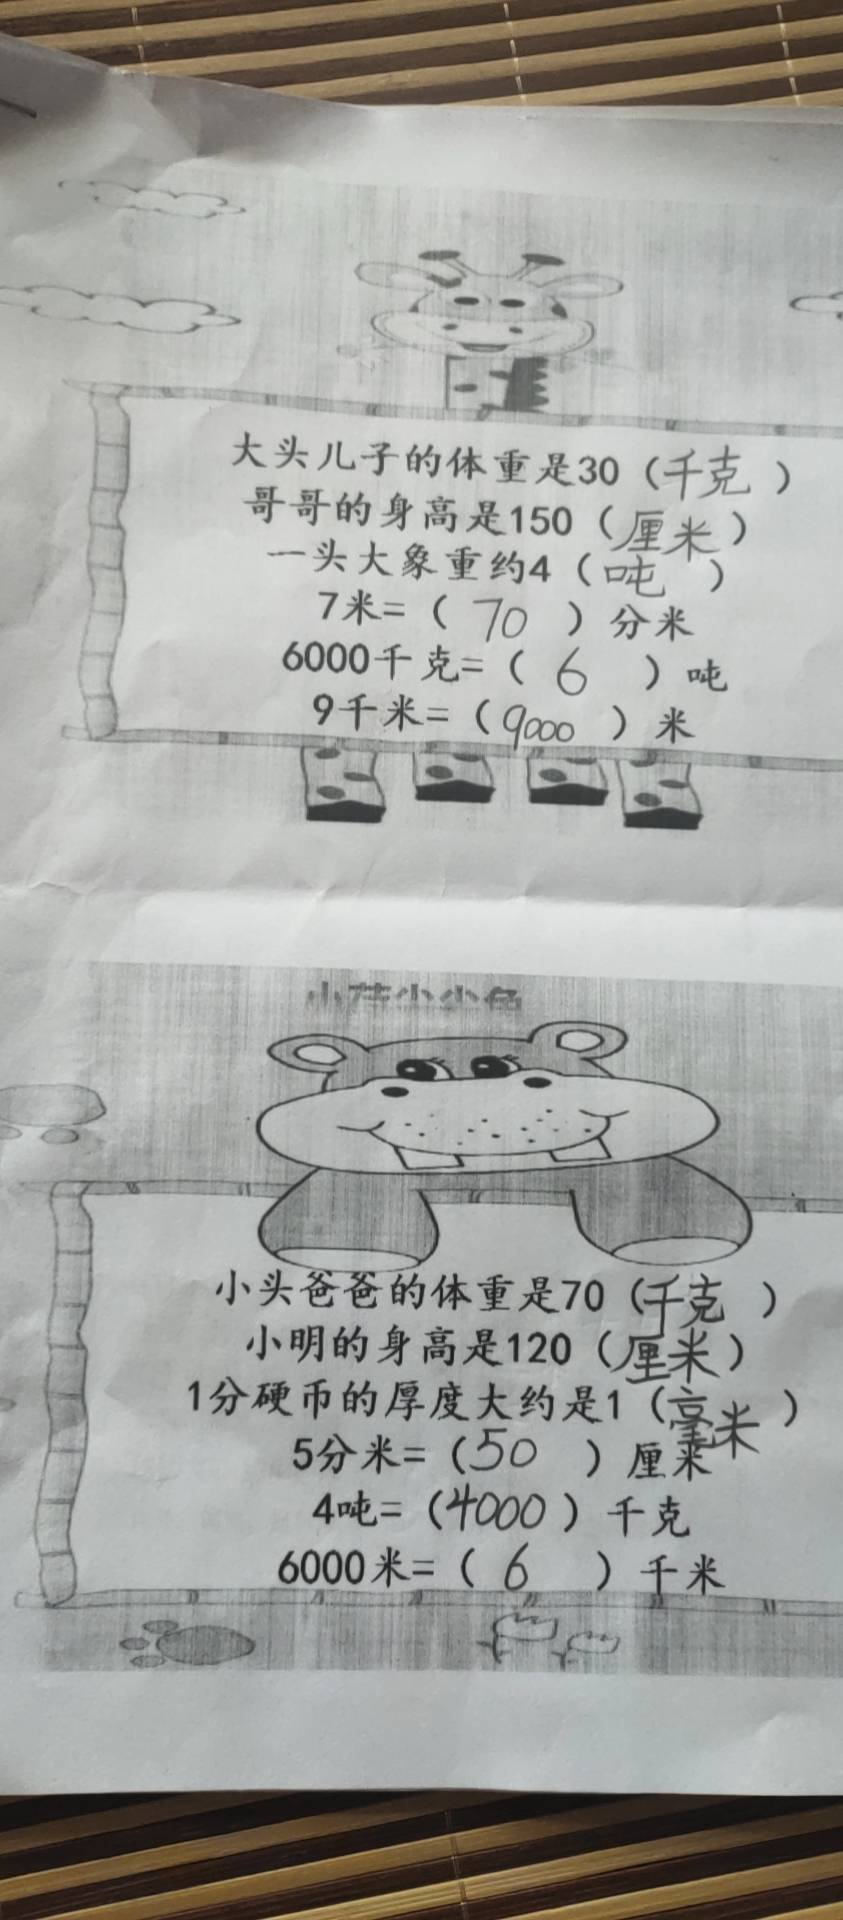 大头儿子的体重是30（千克）
哥哥的身高是150（厘米）
一头大象重约4（吨）
7米=（70）分米
6000千克=（6）吨
9千米=（9000）米
小头爸爸的体重是70（千克）
小明的身高是120（厘米）
1分硬币的厚度大约是1（毫米）
5分米=（50）厘米
4吨=（4000）千克
6000米=（6）千米